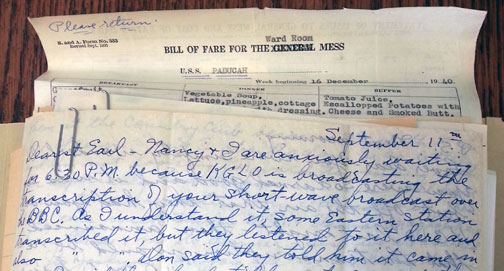 Please return.
S. and A. Form No. 333
Revised Sept. 1926
Ward Room
BILL OF FARE FOR THE GENERAL MESS
U.S.S. PADUCAH
Week beginning 16 December, 1940
BREAKFAST DINNER SUPPER
Vegetable Soup. Tomato Juice,
Lettuce, pineapple, cottage Escalloped Potatoes with
with dressing. Cheese and Smoked Butt.
September 11th
Dearest Earl - Nancy & I are anxiously waiting
for 6:30 P.M. because KGLO is broadcasting the
transcription of your short-wave broadcast over
BBC. As I understand it, some Eastern Station
transcribed it, but they listened to it here and
also " " . Don said they told him it came in